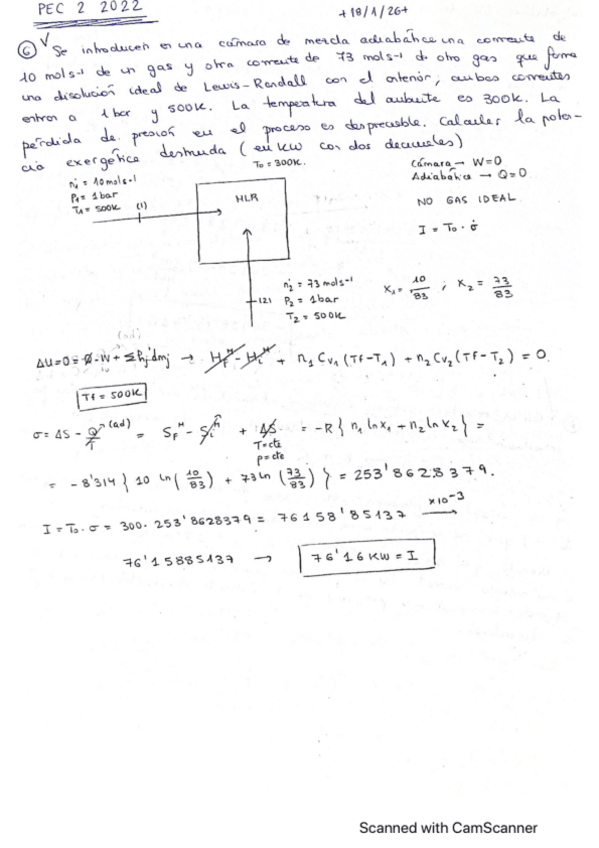 PEC 2 2022
+18/1/26+
⑥ Se introducen en una cámara de mezcla adiabática una corriente de
10 mol s⁻¹ de un gas y otra corriente de 73 mol s⁻¹ de otro gas que forma
una disolución ideal de Lewis-Randall con el anterior; ambas corrientes
entran a 1 bar y 500K. La temperatura del ambiente es 300K. La
pérdida de presión en el proceso es despreciable. Calcular la poten-
cia exergética destruida (en KW con dos decimales)
T₀ = 300K.
ṅ₁ = 10 mol s⁻¹
P₁ = 1 bar
T₁ = 500K
(1)
HLR
Cámara → W=0
Adiabática → Q=0
NO GAS IDEAL
I = T₀ · σ̇
(2)
ṅ₂ = 73 mol s⁻¹
P₂ = 1 bar
T₂ = 500K
X₁ = 10/83 ; X₂ = 73/83
(ad)
ΔU=0= Q - W + Σhj dmj → H_F^M - H_i^M + n₁ Cv₁ (Tf-T₁) + n₂ Cv₂ (Tf-T₂) = 0.
Tf = 500K
σ = ΔS - Q/T (ad) = S_F^M - S_i^M + ΔS = -R { n₁ ln x₁ + n₂ ln x₂ } =
T=cte
p=cte
= -8'314 { 10 ln (10/83) + 73 ln (73/83) } = 253'8628379.
I = T₀ · σ = 300 · 253'8628379 = 76158'85137 ×10⁻³ →
76'15885137 → 76'16 KW = I
Scanned with CamScanner